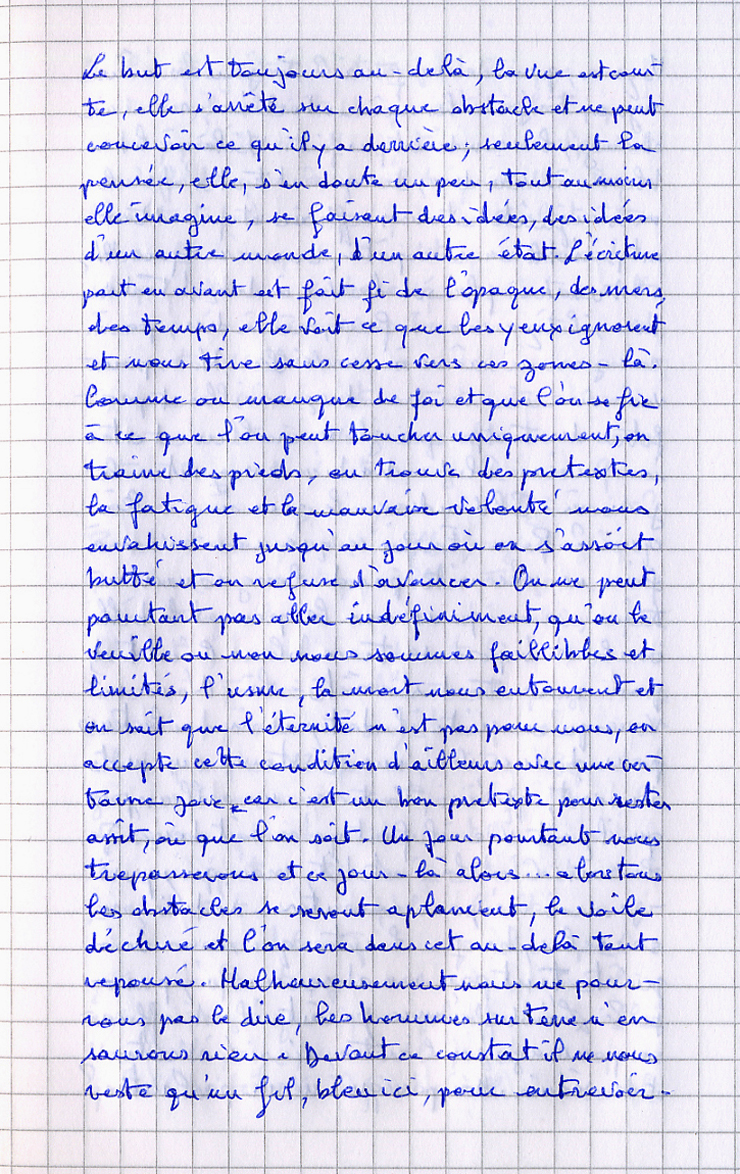 Le but est toujours au-delà, la vue est cour
te, elle s'arrête sur chaque obstacle et ne peut
concevoir ce qu'il y a derrière ; seulement la
pensée, elle, s'en doute un peu, tout au moins
elle imagine, se faisant des idées, des idées
d'un autre monde, d'un autre état. L'écriture
part en avant et fait fi de l'opaque, des murs,
des temps, elle voit ce que les yeux ignorent
et nous tire sans cesse vers ces zones-là.
Comme on manque de foi et que l'on se fie
à ce que l'on peut toucher uniquement, on
traine des pieds, on trouve des pretextes,
la fatigue et la mauvaise volonté nous
envahissent jusqu'au jour où on s'assoit
butté et on refuse d'avancer. On ne peut
pourtant pas aller indéfiniment, qu'on le
veuille ou non nous sommes faillibles et
limités, l'usure, la mort nous entourent et
on sait que l'éternité n'est pas pour nous, on
accepte cette condition d'ailleurs avec une cer
taine joie car c'est un bon pretexte pour rester
assit, où que l'on soit. Un jour pourtant nous
trepasserons et ce jour-là alors... alors tous
les obstacles se seront aplanient, le voile
déchiré et l'on sera dans cet au-delà tant
repoussé. Malheureusement nous ne pour-
rons pas le dire, les hommes sur terre n'en
saurons rien. Devant ce constat il ne nous
reste qu'un fil, bleu ici, pour entrevoir.